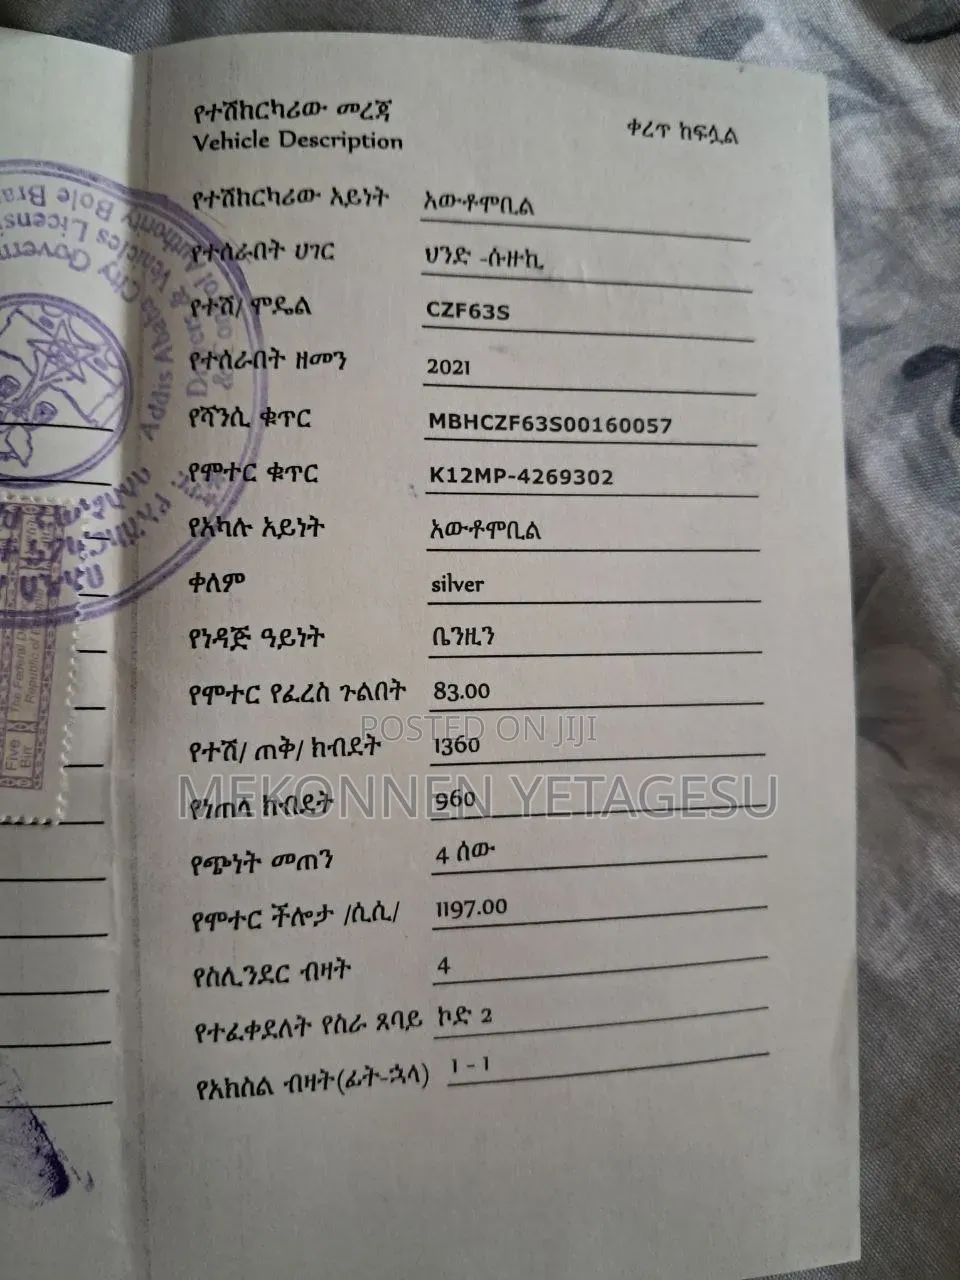 የተሽከርካሪው መረጃ
Vehicle Description
ቀረጥ ከፍሏል
የተሽከርካሪው አይነት አውቶሞቢል
የተሰራበት ሀገር ህንድ -ሱዙኪ
የተሽ/ ሞዴል CZF63S
የተሰራበት ዘመን 2021
የሻንሲ ቁጥር MBHCZF63S00160057
የሞተር ቁጥር K12MP-4269302
የአካሉ አይነት አውቶሞቢል
ቀለም silver
የነዳጅ ዓይነት ቤንዚን
የሞተር የፈረስ ጉልበት 83.00
POSTED ON JIJI
የተሽ/ ጠቅ/ ክብደት 1360
MEKONNEN YETAGESU
የነጠላ ክብደት 960
የጭነት መጠን 4 ሰው
የሞተር ችሎታ /ሲሲ/ 1197.00
የስሊንደር ብዛት 4
የተፈቀደለት የስራ ጸባይ ኮድ 2
የአክስል ብዛት(ፊት-ኋላ) 1 - 1
Addis Ababa City Govern
Five
Birr
The Federal D
Republic of